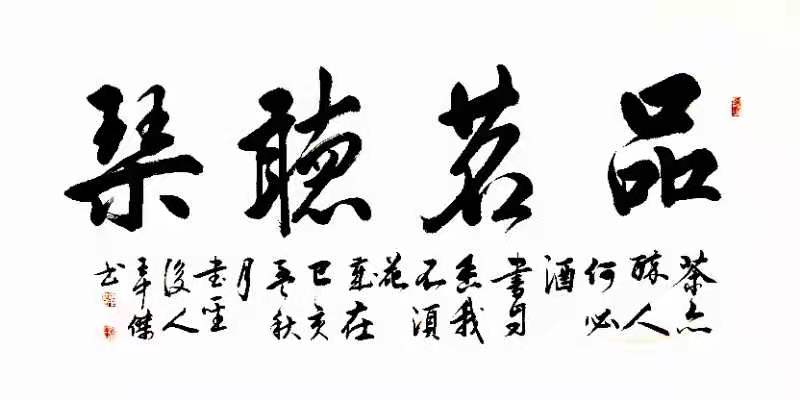 品茗聽琴
茶亦
醉人
何必
酒
書自
香我
不須
花
歲在
己亥
孟秋
月
書聖
後人
傑
书